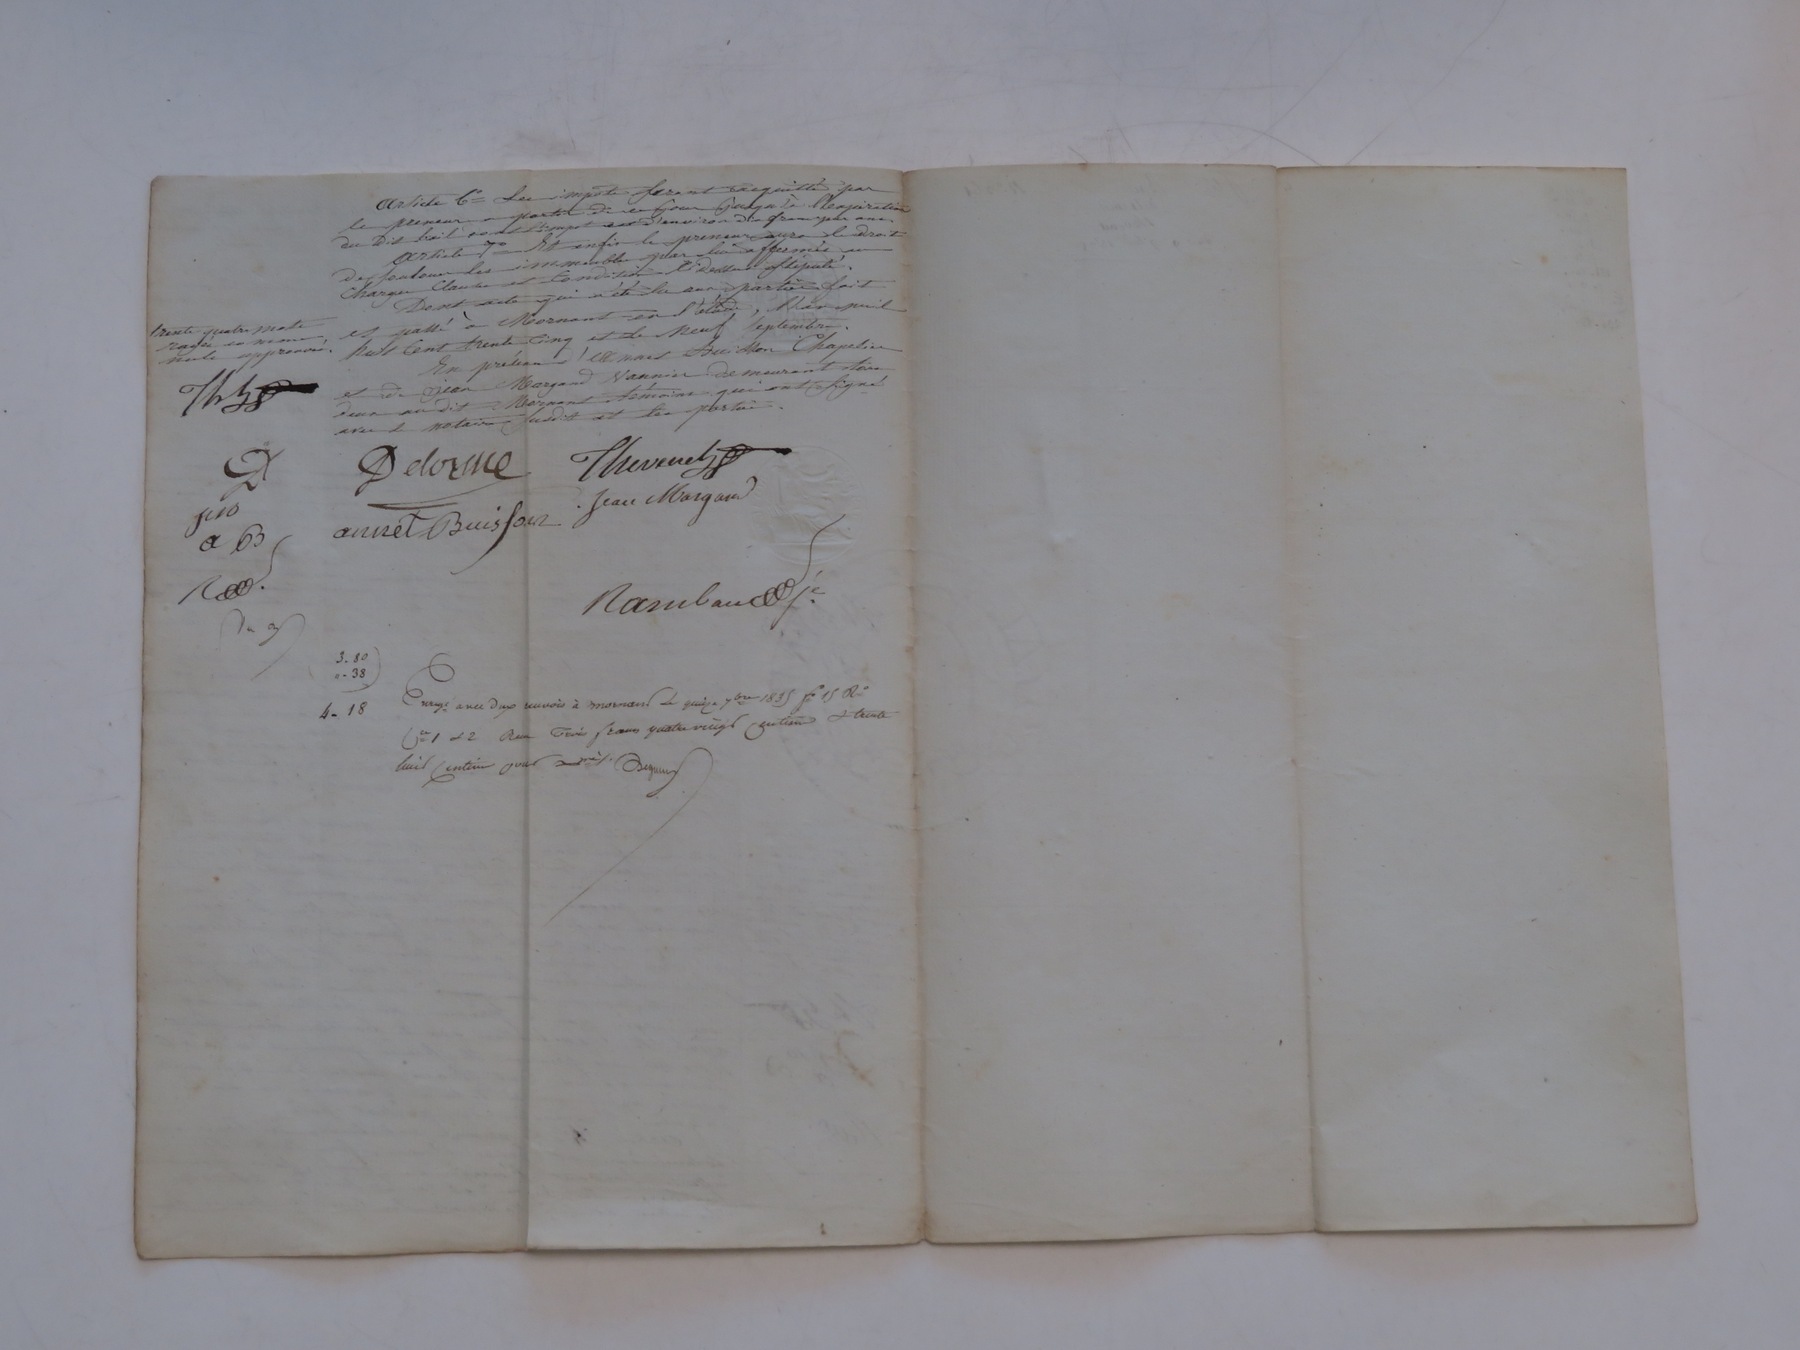 Article 6e Les impots seront acquittés par
le preneur a partir de ce jour jusqu'à l'expiration
du dit bail dont l'impot est d'environ dix francs par ans.
Article 7e Et enfin le preneur aura le droit
les immeuble par lui affermés
charges clauses et condition ci dessus stipulé.
Dont acte qui a été lu aux partie fait
et passé à Mornant en l'étude, l'an mil
huit cent trente cinq et le neuf septembre.
En présence d'Annet Buisson Chapelier
et de Jean Margand Vannier demeurant tous
deux au dit Mornant témoins qui ont signé
avec le notaire susdit et les partie.
trente quatre mots
rayés comme
nuls approuvé.
Th
D Delorme Thevenet
annet Buisson Jean Margand
J M
a B
R
Rambaud
3-80
0-38
4-18
Enregé avec deux renvois à mornant le quinze 7bre 1835 fo 15 Ro
Cse 1 et 2 Reçu trois francs quatre vingt centimes & trente
huit centimes pour